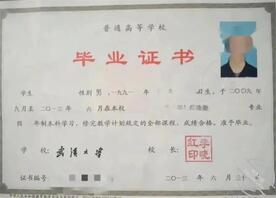 普通高等学校
毕业证书
学生 性别 男，一九九一年 日生，于二〇〇九年
九月至二〇一三年 六月在本校
年制本科学习，修完教学计划规定的全部课程，成绩合格，准予毕业。
学校：武汉大学 校长：
李晓红印
证书编号 二〇一三年六月三十日